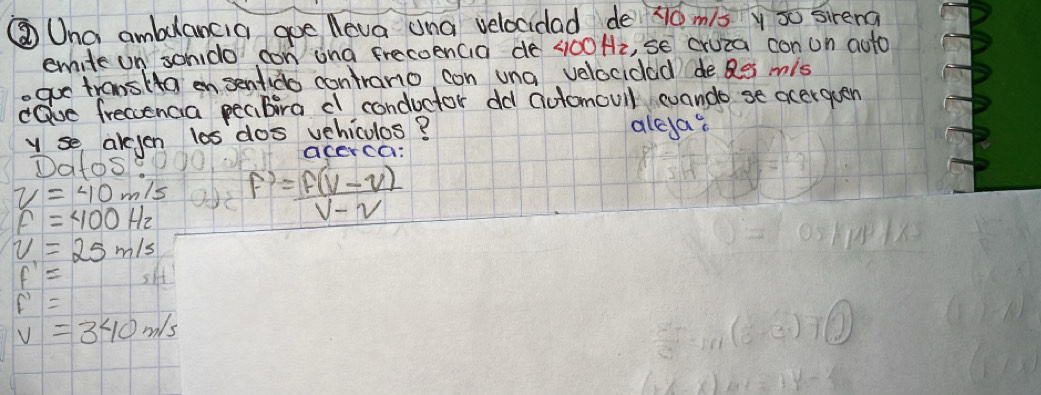 ② Una ambulancia que lleva una velocidad de 40 m/s y su sirena
emite un sonido con una frecuencia de 400 Hz, se cruza con un auto
que transita en sentido contrario con una velocidad de 25 m/s
¿Que frecuencia pecibira el conductor del automovil cuando se acerquen
y se alejen los dos vehiculos?
aleja:
acerca:
Datos:
v = 40 m/s
f' = f(v - v)
v - v
f = 400 Hz
v = 25 m/s
f' =
f' =
v = 340 m/s